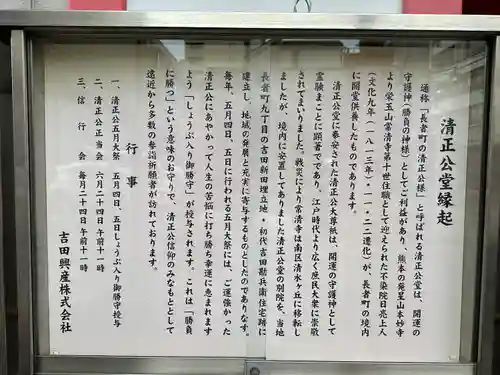 清正公堂縁起
通称「長者町の清正公様」と呼ばれる清正公堂は、開運の
守護神(勝負の神様)としてご利益があり、熊本の発星山本妙寺
より蛍玉山常清寺第十世住職として迎えられた不染院日亮上人
(文化九年(一八一三年)・一一・二二遷化)が、長者町の境内
に開堂供養したものであります。
清正公堂に奉安された清正公大尊祇は、開運の守護神として
霊験まことに顕著でであり、江戸時代より広く庶民大衆に崇敬
されてまいりました。戦災により常清寺は南区清水ヶ丘に移転し
ましたが、境内に安置してありました清正公堂の別院を、当地
長者町九丁目の吉田新田埋立地・初代吉田勘兵衛住宅跡に
建立し、地域の発展と充実に寄与するものとしたのでありなす。
毎年、五月四日、五日に行われる五月大祭には、ご運強かった
清正公にあやかって人生の苦悩に打ち勝ち幸運に恵まれます
よう「しょうぶ入り御勝守」が授与されます。これは「勝負
に勝つ」という意味のお守りで、清正公信仰のみなもととして
遠近から多数の参詣祈願者が訪れております。
行事
一、清正公五月大祭 五月四日、五日しょうぶ入り御勝守授与
二、清正公正当会 六月二十四日 午前十一時
三、信行会 毎月二十四日 午前十一時
吉田興産株式会社